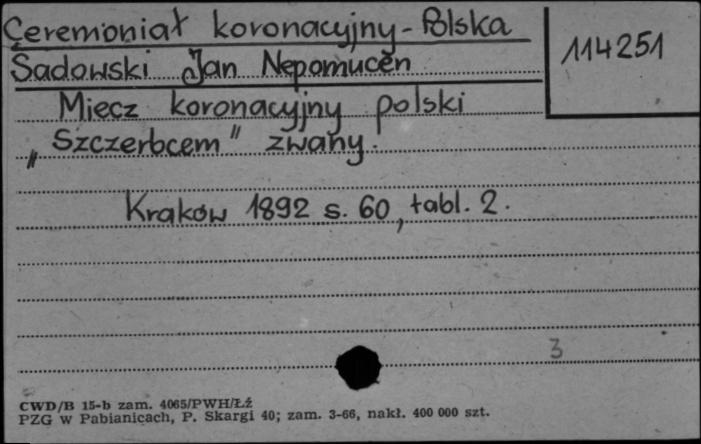 Ceremoniał koronacyjny - Polska
114251
Sadowski Jan Nepomucen
Miecz koronacyjny polski
„Szczerbcem" zwany.
Kraków 1892 s. 60, tabl. 2.
3
CWD/B 15-b zam. 4065/PWH/Łź
PZG w Pabianicach, P. Skargi 40; zam. 3-66, nakł. 400 000 szt.